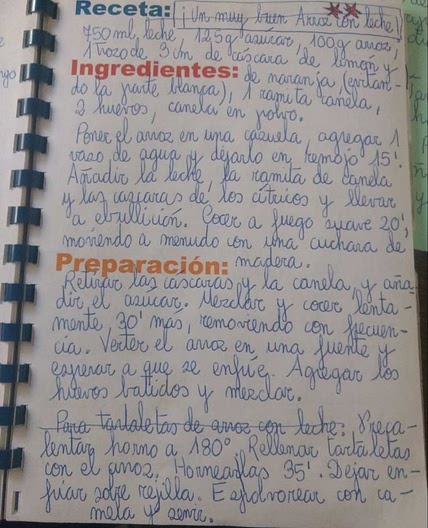 Receta: ¡Un muy buen Arroz con leche!
750 ml leche, 125g azúcar, 100g arroz,
1 trozo de 3 cm de cáscara de limón y
Ingredientes: de naranja (evitan-
do la parte blanca), 1 ramita canela,
2 huevos, canela en polvo.
Poner el arroz en una cazuela, agregar 1
vaso de agua y dejarlo en remojo 15'.
Añadir la leche, la ramita de canela
y las cáscaras de los cítricos y llevar
a ebullición. Cocer a fuego suave 20',
moviendo a menudo con una cuchara de
Preparación: madera.
Retirar las cáscaras y la canela, y aña-
dir el azúcar. Mezclar y cocer, lenta-
mente, 30' más, removiendo con frecuen-
cia. Verter el arroz en una fuente y
esperar a que se enfríe. Agregar los
huevos batidos y mezclar.
Para tartaletas de arroz con leche: Preca-
lentar horno a 180°. Rellenar tartaletas
con el arroz. Hornearlas 35'. Dejar en-
friar sobre rejilla. Espolvorear con ca-
nela y servir.